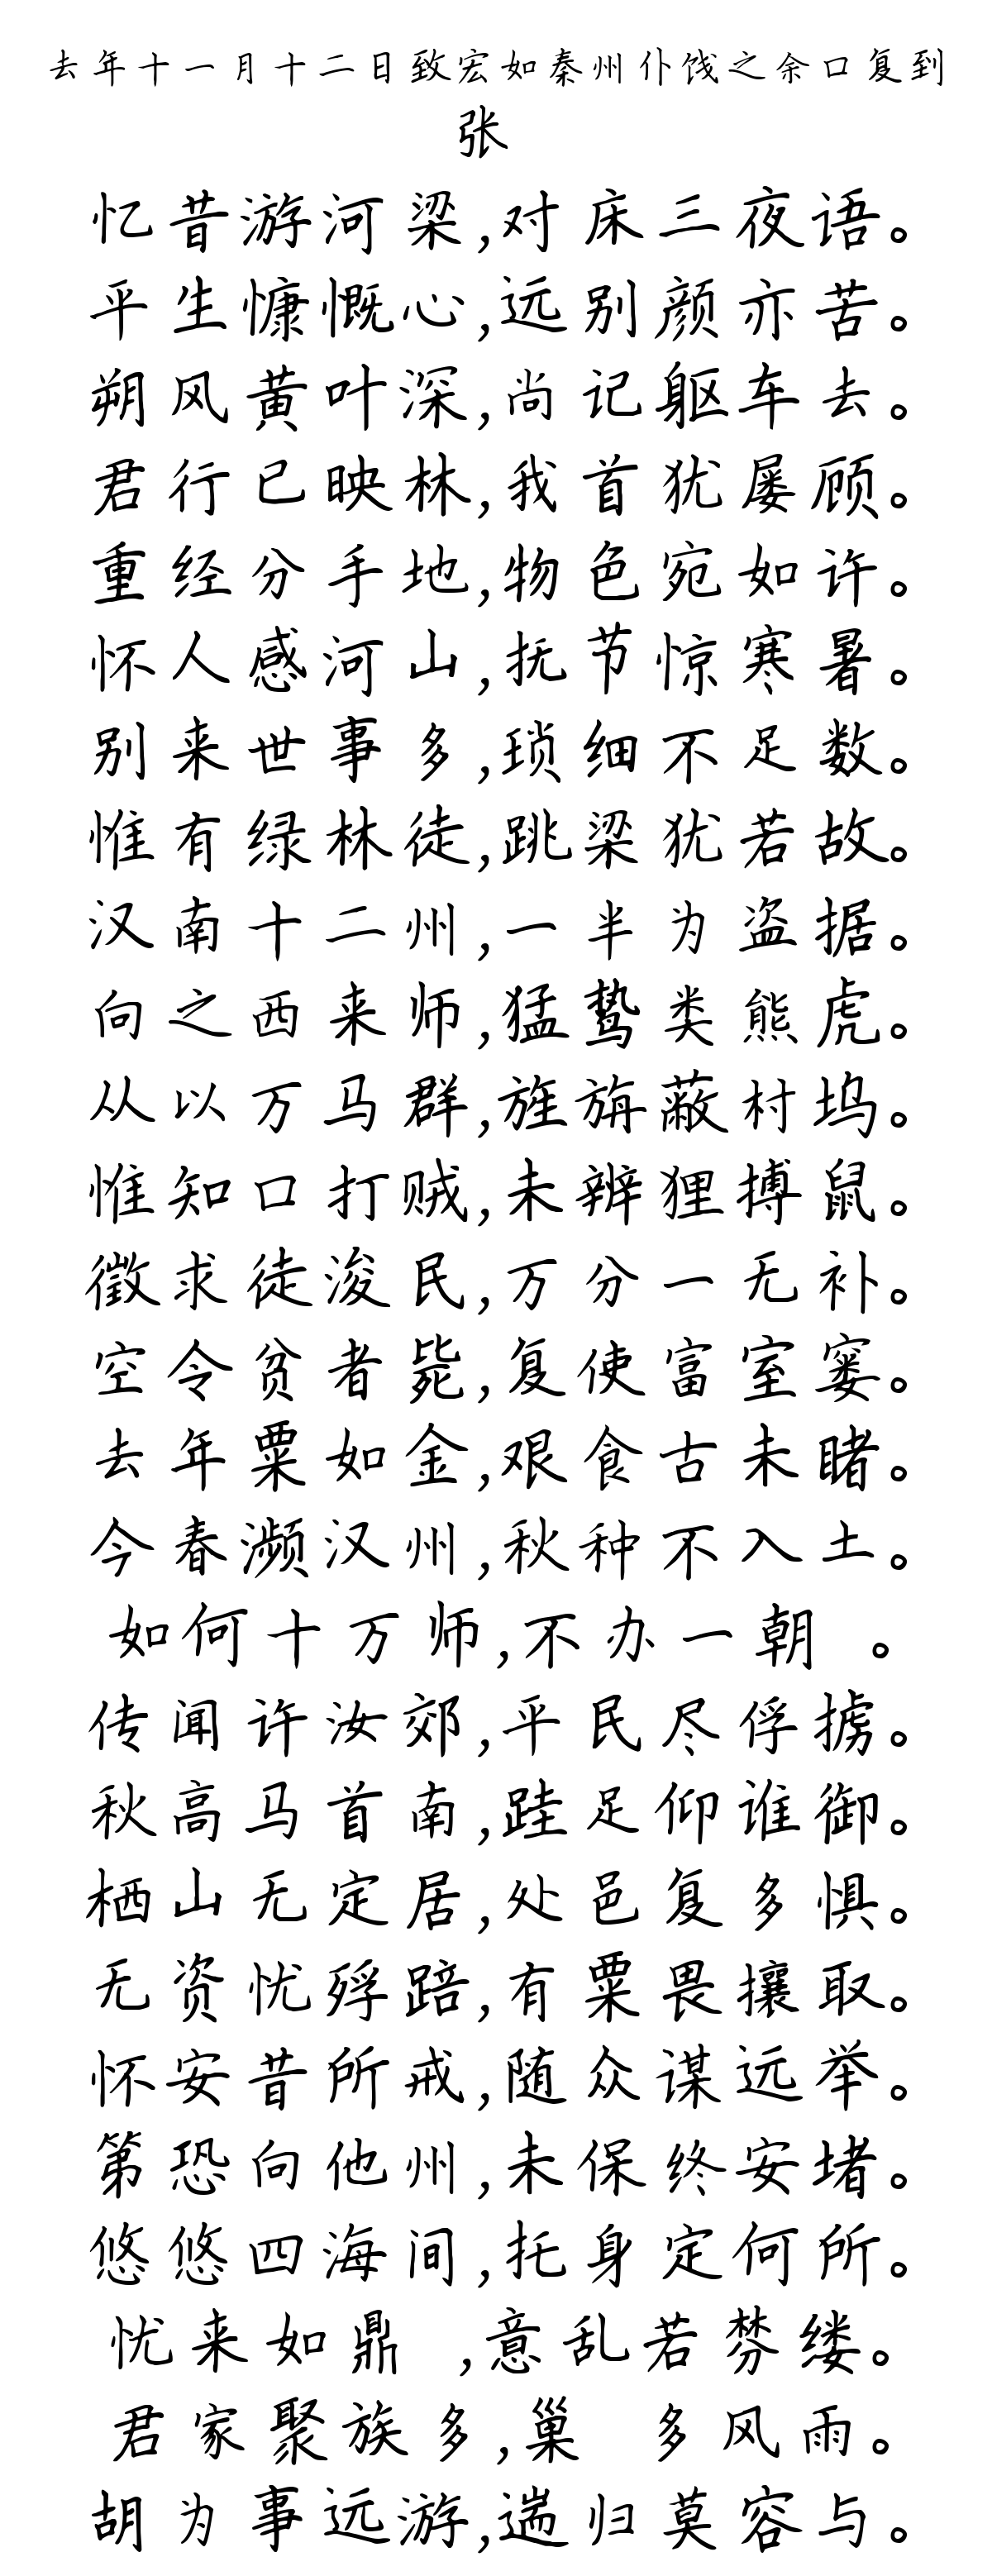 去年十一月十二日致宏如秦州仆饯之余口复到
张
忆昔游河梁,对床三夜语。
平生慷慨心,远别颜亦苦。
朔风黄叶深,尚记躯车去。
君行已映林,我首犹屡顾。
重经分手地,物色宛如许。
怀人感河山,抚节惊寒暑。
别来世事多,琐细不足数。
惟有绿林徒,跳梁犹若故。
汉南十二州,一半为盗据。
向之西来师,猛鸷类熊虎。
从以万马群,旌旃蔽村坞。
惟知口打贼,未辨狸搏鼠。
徵求徒浚民,万分一无补。
空令贫者毙,复使富室窭。
去年粟如金,艰食古未睹。
今春濒汉州,秋种不入土。
如何十万师,不办一朝 。
传闻许汝郊,平民尽俘掳。
秋高马首南,跬足仰谁御。
栖山无定居,处邑复多惧。
无资忧殍踣,有粟畏攘取。
怀安昔所戒,随众谋远举。
第恐向他州,未保终安堵。
悠悠四海间,托身定何所。
忧来如鼎 ,意乱若棼缕。
君家聚族多,巢 多风雨。
胡为事远游,遄归莫容与。